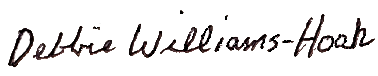 Debbie Williams-Hoak